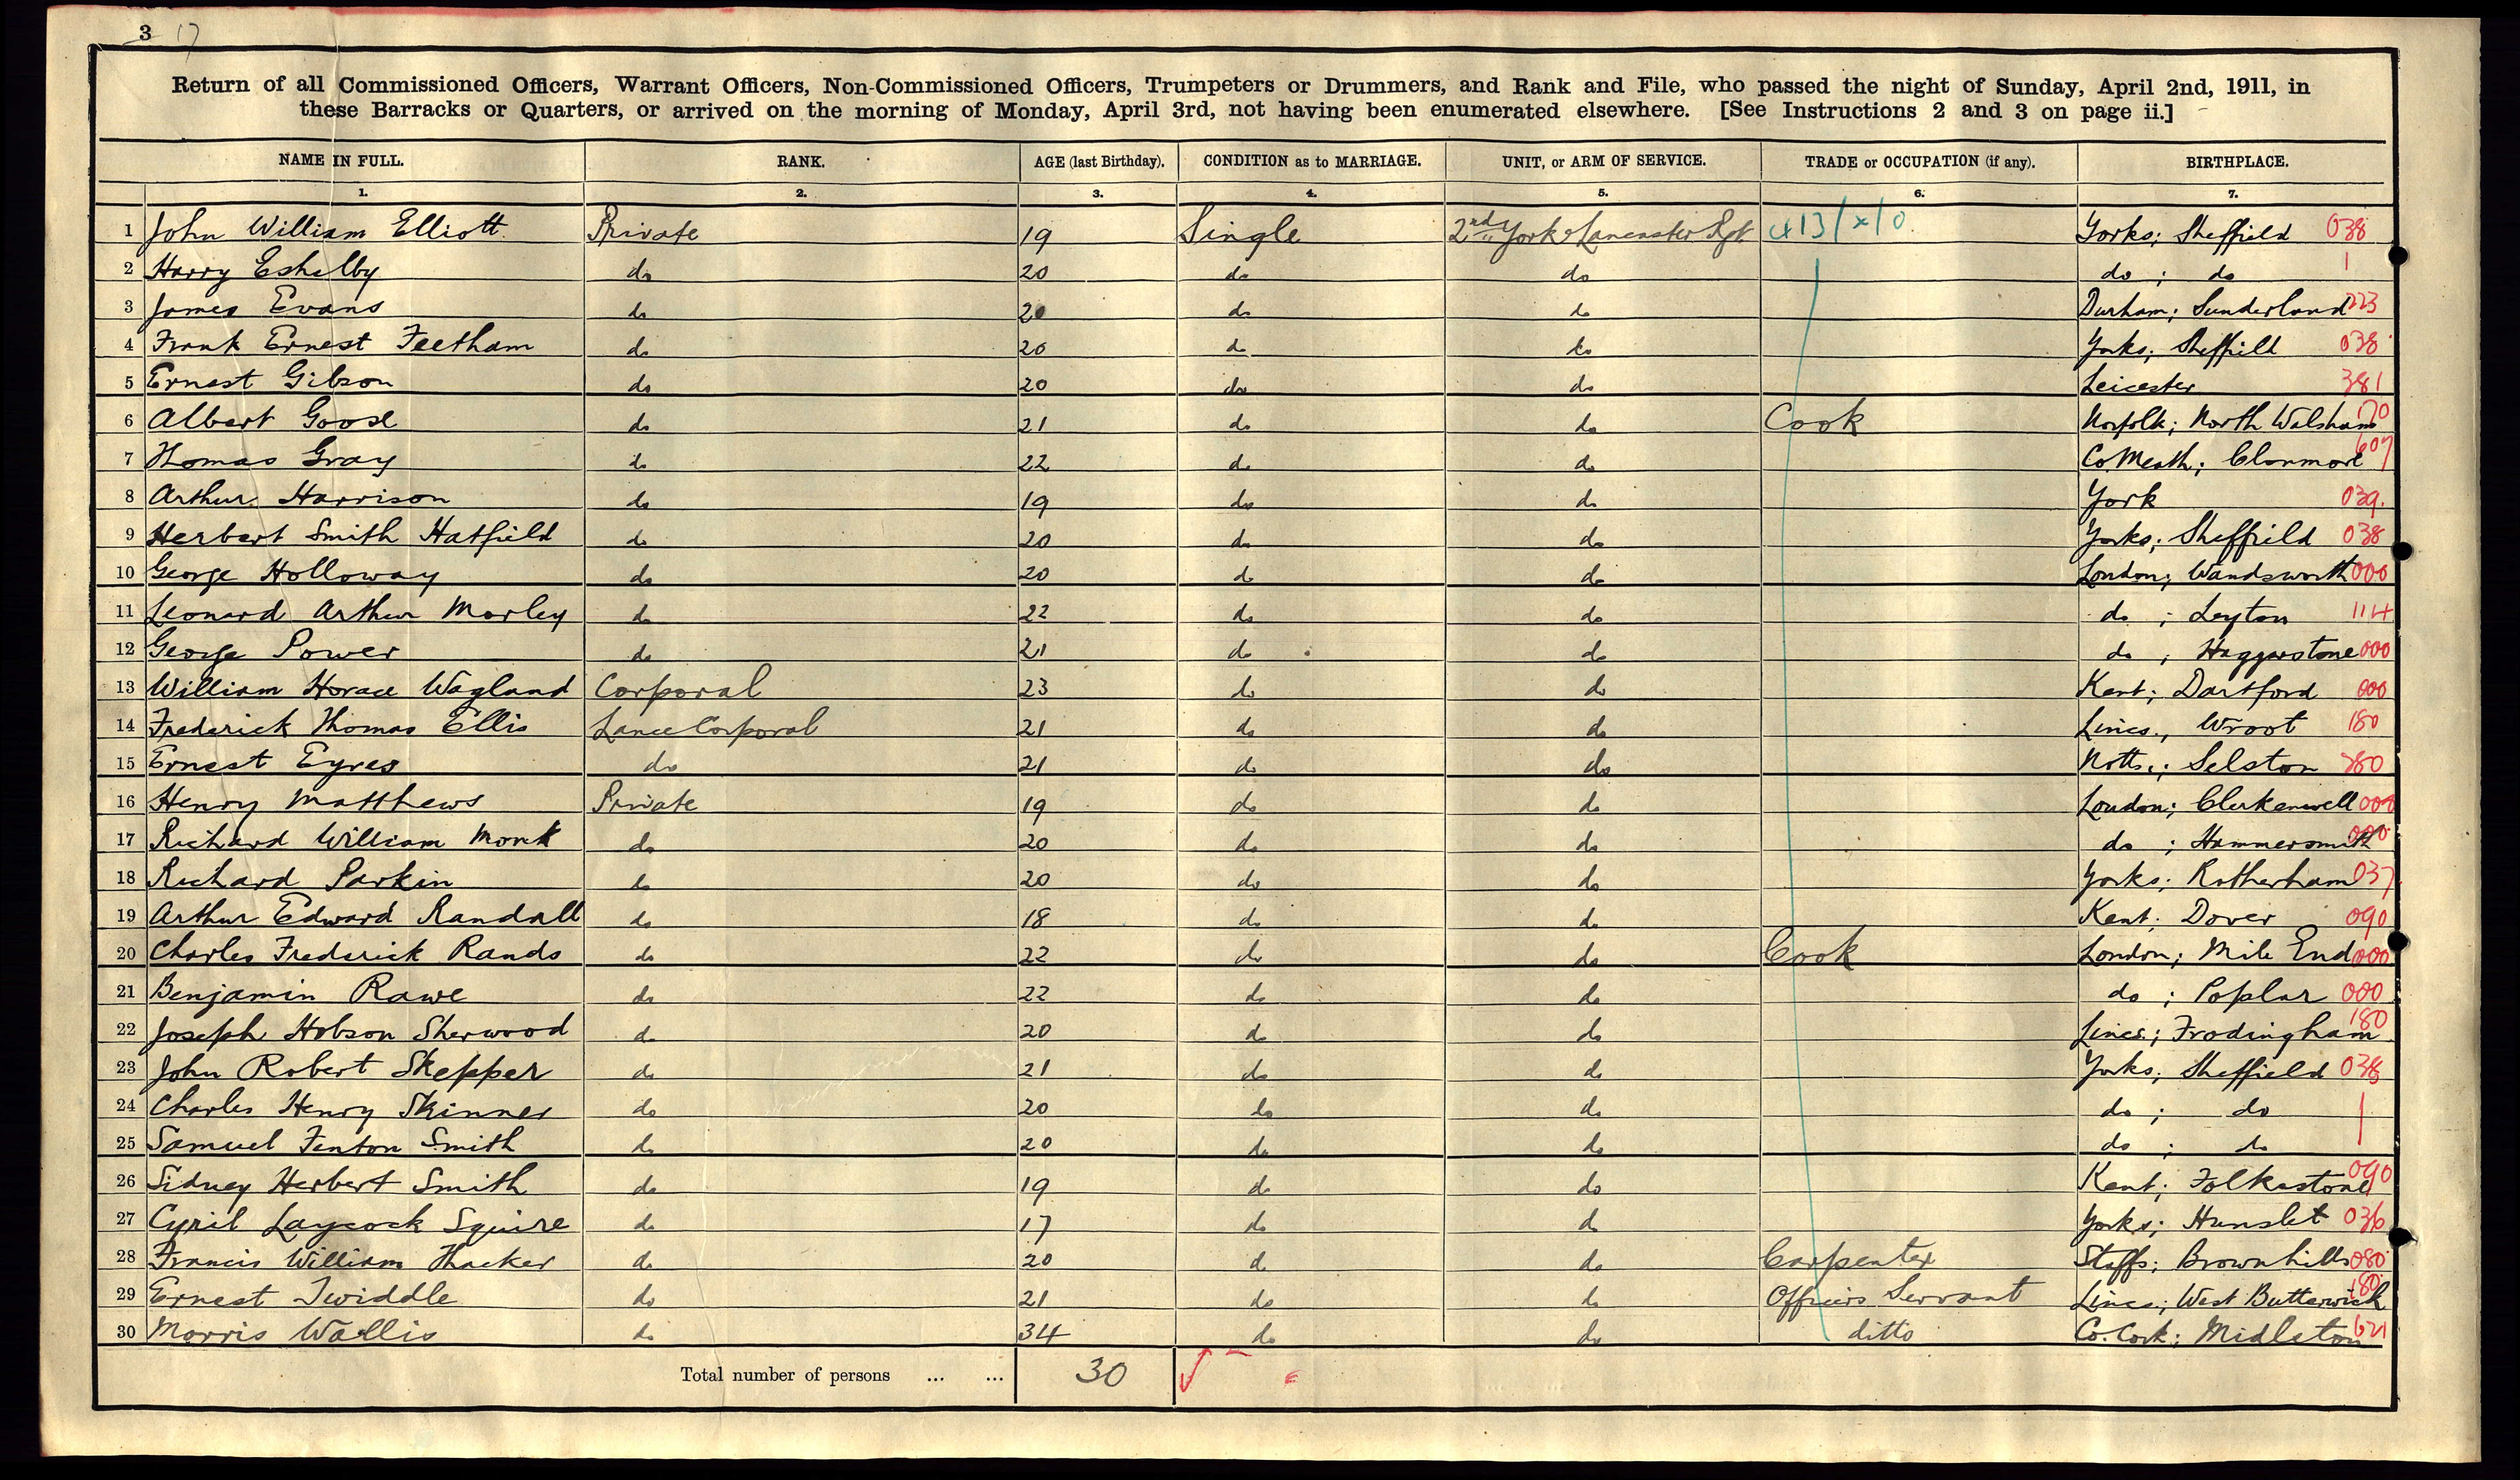 3 17
Return of all Commissioned Officers, Warrant Officers, Non-Commissioned Officers, Trumpeters or Drummers, and Rank and File, who passed the night of Sunday, April 2nd, 1911, in
these Barracks or Quarters, or arrived on the morning of Monday, April 3rd, not having been enumerated elsewhere. [See Instructions 2 and 3 on page ii.]
NAME IN FULL. RANK. AGE (last Birthday). CONDITION as to MARRIAGE. UNIT, or ARM OF SERVICE. TRADE or OCCUPATION (if any). BIRTHPLACE.
1. 2. 3. 4. 5. 6. 7.
1 John William Elliott Private 19 Single 2nd York & Lancaster Rgt. 413/x/0 Yorks; Sheffield 038
2 Harry Eshelby do 20 do do do ; do
3 James Evans do 20 do do Durham; Sunderland 223
4 Frank Ernest Feetham do 20 do do Yorks; Sheffield 038
5 Ernest Gibson do 20 do do Leicester 381
6 Albert Goose do 21 do do Cook Norfolk; North Walsham 170
7 Thomas Gray do 22 do do Co. Meath; Clonmore 607
8 Arthur Harrison do 19 do do York 039
9 Herbert Smith Hatfield do 20 do do Yorks; Sheffield 038
10 George Holloway do 20 do do London; Wandsworth 000
11 Leonard Arthur Morley do 22 do do do ; Leyton 114
12 George Power do 21 do do do ; Haggerstone 000
13 William Horace Wagland Corporal 23 do do Kent; Dartford 000
14 Frederick Thomas Ellis Lance Corporal 21 do do Lincs., Wroot 180
15 Ernest Eyres do 21 do do Notts.; Selston 380
16 Henry Matthews Private 19 do do London; Clerkenwell 000
17 Richard William Monk do 20 do do do ; Hammersmith 000
18 Richard Parkin do 20 do do Yorks; Rotherham 037
19 Arthur Edward Randall do 18 do do Kent; Dover 090
20 Charles Frederick Rands do 22 do do Cook London; Mile End 000
21 Benjamin Rawe do 22 do do do ; Poplar 000
22 Joseph Hobson Sherwood do 20 do do Lincs; Frodingham 180
23 John Robert Skepper do 21 do do Yorks; Sheffield 038
24 Charles Henry Skinner do 20 do do do ; do
25 Samuel Fenton Smith do 20 do do do ; do
26 Sidney Herbert Smith do 19 do do Kent; Folkestone 090
27 Cyril Laycock Squire do 17 do do Yorks; Hunslet 036
28 Francis William Thacker do 20 do do Carpenter Staffs; Brownhills 080
29 Ernest Twiddle do 21 do do Officers Servant Lincs; West Butterwick 180
30 Morris Wallis do 34 do do ditto Co. Cork; Midleton 621
Total number of persons ... ... 30